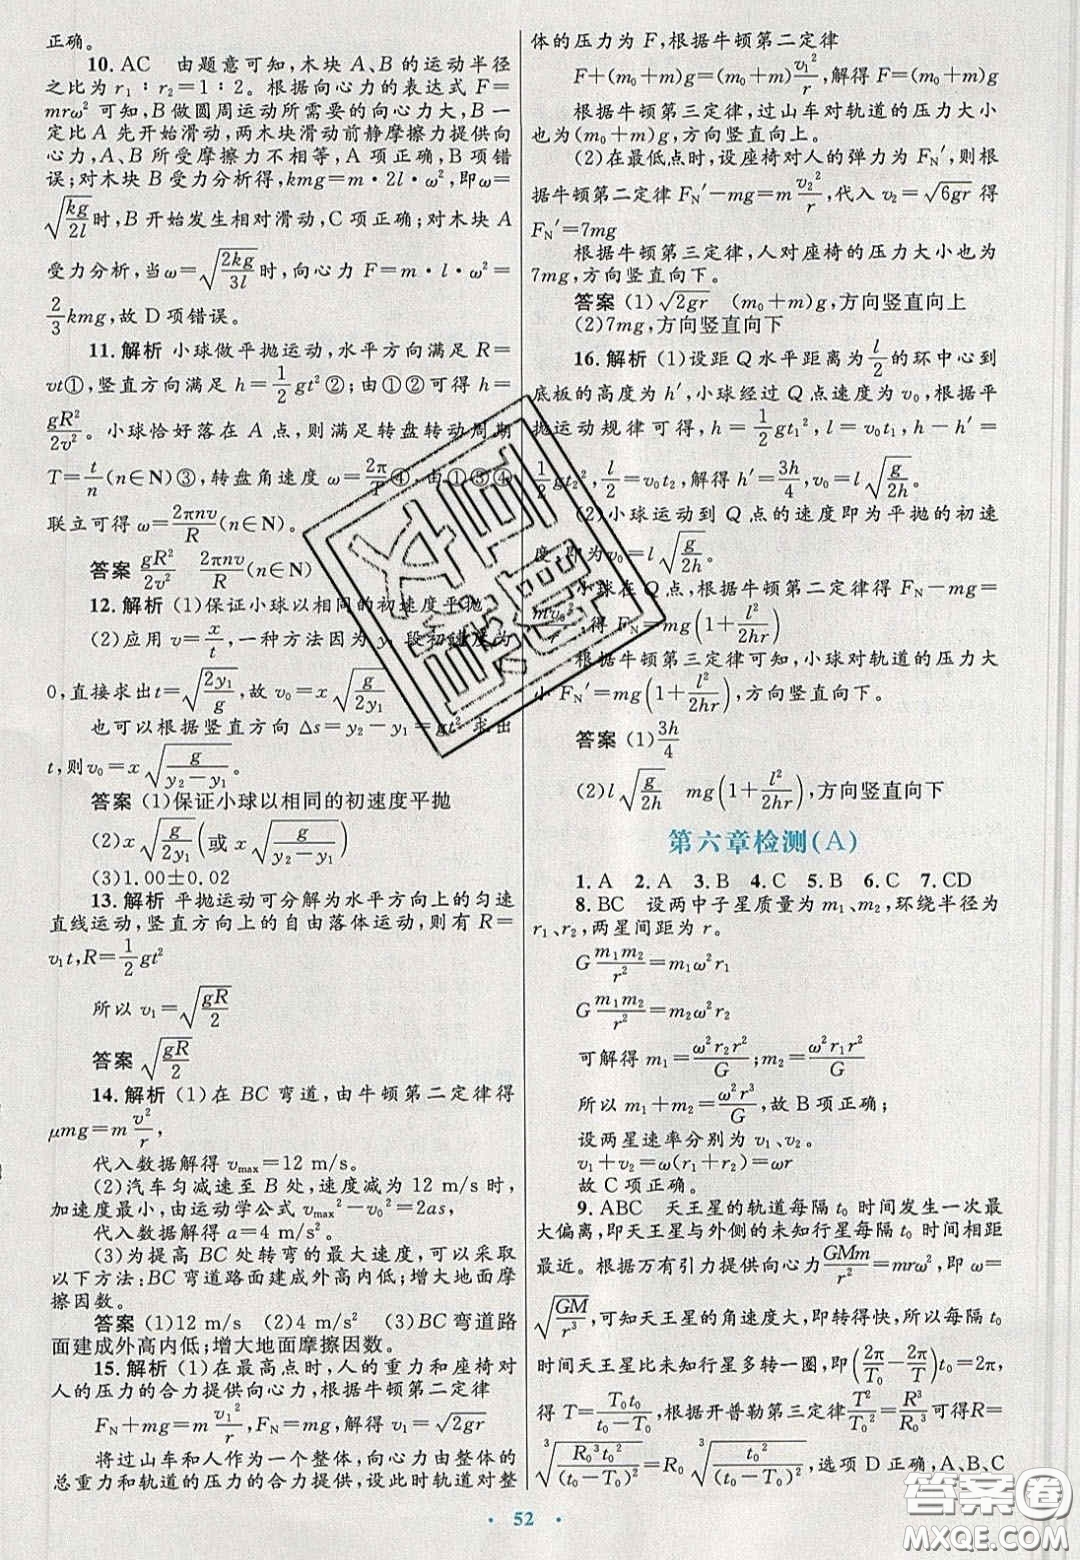 正确。
10. AC 由题意可知,木块 A、B 的运动半径
之比为 r₁∶r₂=1∶2。根据向心力的表达式 F=
mrω² 可知,B 做圆周运动所需要的向心力大,B 一
定比 A 先开始滑动,两木块滑动前静摩擦力提供向
心力,A、B 所受摩擦力不相等,A 项正确,B 项错
误;对木块 B 受力分析得,kmg=m·2l·ω²,即 ω=
√(kg/2l)时,B 开始发生相对滑动,C 项正确;对木块 A
受力分析,当 ω=√(2kg/3l)时,向心力 F=m·l·ω²=
2/3 kmg,故 D 项错误。
11. 解析 小球做平抛运动,水平方向满足 R=
vt①,竖直方向满足 h=1/2 gt²②;由①②可得 h=
gR²/2v²。小球恰好落在 A 点,则满足转盘转动周期
T=t/n(n∈N)③,转盘角速度 ω=2π/T④,由①③④
联立可得 ω=2πnv/R(n∈N)。
答案 gR²/2v² 2πnv/R(n∈N)
12. 解析 (1)保证小球以相同的初速度平抛
(2)应用 v=x/t,一种方法因为 y₁ 段初速度为
0,直接求出 t=√(2y₁/g),故 v₀=x√(g/2y₁)
也可以根据竖直方向 Δs=y₂-y₁=gt² 求出
t,则 v₀=x√(g/(y₂-y₁))。
答案 (1)保证小球以相同的初速度平抛
(2)x√(g/2y₁)(或 x√(g/(y₂-y₁)))
(3)1.00±0.02
13. 解析 平抛运动可分解为水平方向上的匀速
直线运动,竖直方向上的自由落体运动,则有 R=
v₁t,R=1/2 gt²
所以 v₁=√(gR/2)
答案 √(gR/2)
14. 解析 (1)在 BC 弯道,由牛顿第二定律得
μmg=m v²/r,
代入数据解得 vmax=12 m/s。
(2)汽车匀减速至 B 处,速度减为 12 m/s 时,
加速度最小,由运动学公式 vmax²-v₀²=2as,
代入数据解得 a=4 m/s²。
(3)为提高 BC 处转弯的最大速度,可以采取
以下方法:BC 弯道路面建成外高内低;增大地面摩
擦因数。
答案 (1)12 m/s (2)4 m/s² (3)BC 弯道路
面建成外高内低;增大地面摩擦因数。
15. 解析 (1)在最高点时,人的重力和座椅对
人的压力的合力提供向心力,根据牛顿第二定律
FN+mg=m v₁²/r,FN=mg,解得 v₁=√(2gr)
将过山车和人作为一个整体,向心力由整体的
总重力和轨道的压力的合力提供,设此时轨道对整
体的压力为 F,根据牛顿第二定律
F+(m₀+m)g=(m₀+m)v₁²/r,解得 F=(m₀+m)g
根据牛顿第三定律,过山车对轨道的压力大小
也为(m₀+m)g,方向竖直向上。
(2)在最低点时,设座椅对人的弹力为 FN′,则根
据牛顿第二定律 FN′-mg=m v₂²/r,代入 v₂=√(6gr) 得
FN′=7mg
根据牛顿第三定律,人对座椅的压力大小也为
7mg,方向竖直向下。
答案 (1)√(2gr) (m₀+m)g,方向竖直向上
(2)7mg,方向竖直向下
16. 解析 (1)设距 Q 水平距离为 l/2 的环中心到
底板的高度为 h′,小球经过 Q 点速度为 v₀,根据平
抛运动规律可得,h=1/2 gt₁²,l=v₀t₁,h-h′=
1/2 gt₂²,l/2=v₀t₂,解得 h′=3h/4,v₀=l√(g/2h)。
(2)小球运动到 Q 点的速度即为平抛的初速
度,即为 v₀=l√(g/2h)。
小球在 Q 点,根据牛顿第二定律得 FN-mg=
mv₀²/r,得 FN=mg(1+l²/2hr)
根据牛顿第三定律可知,小球对轨道的压力大
小 FN′=mg(1+l²/2hr),方向竖直向下。
答案 (1)3h/4
(2)l√(g/2h) mg(1+l²/2hr),方向竖直向下
第六章检测(A)
1. A 2. A 3. B 4. C 5. B 6. C 7. CD
8. BC 设两中子星质量为 m₁、m₂,环绕半径为
r₁、r₂,两星间距为 r。
G m₁m₂/r²=m₁ω²r₁
G m₁m₂/r²=m₂ω²r₂
可解得 m₁=ω²r₂r²/G;m₂=ω²r₁r²/G
所以 m₁+m₂=ω²r³/G,故 B 项正确;
设两星速率分别为 v₁、v₂。
v₁+v₂=ω(r₁+r₂)=ωr
故 C 项正确。
9. ABC 天王星的轨道每隔 t₀ 时间发生一次最
大偏离,即天王星与外侧的未知行星每隔 t₀ 时间相距
最近。根据万有引力提供向心力 GMm/r²=mrω²,即 ω=
√(GM/r³),可知天王星的角速度大,即转得快,所以每隔 t₀
时间天王星比未知行星多转一圈,即(2π/T₀-2π/T)t₀=2π,
得 T=T₀t₀/(t₀-T₀),根据开普勒第三定律 T²/T₀²=R³/R₀³ 可得 R=
³√(R₀³t₀²/(t₀-T₀)²)=R₀ ³√(t₀²/(t₀-T₀)²),选项 D 正确,A、B、C
· 52 ·
答案圈
MXQE.COM